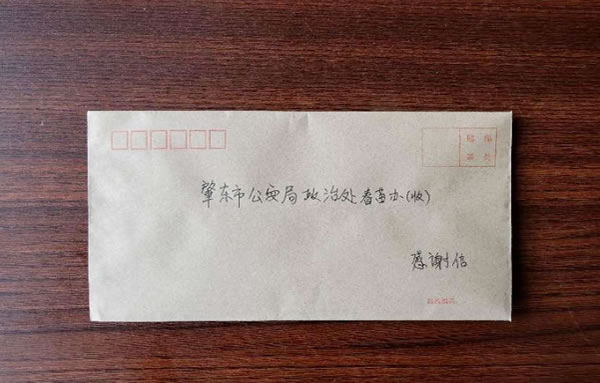 贴 邮
票 处
肇东市公安局政治处春苗办(收)
感谢信